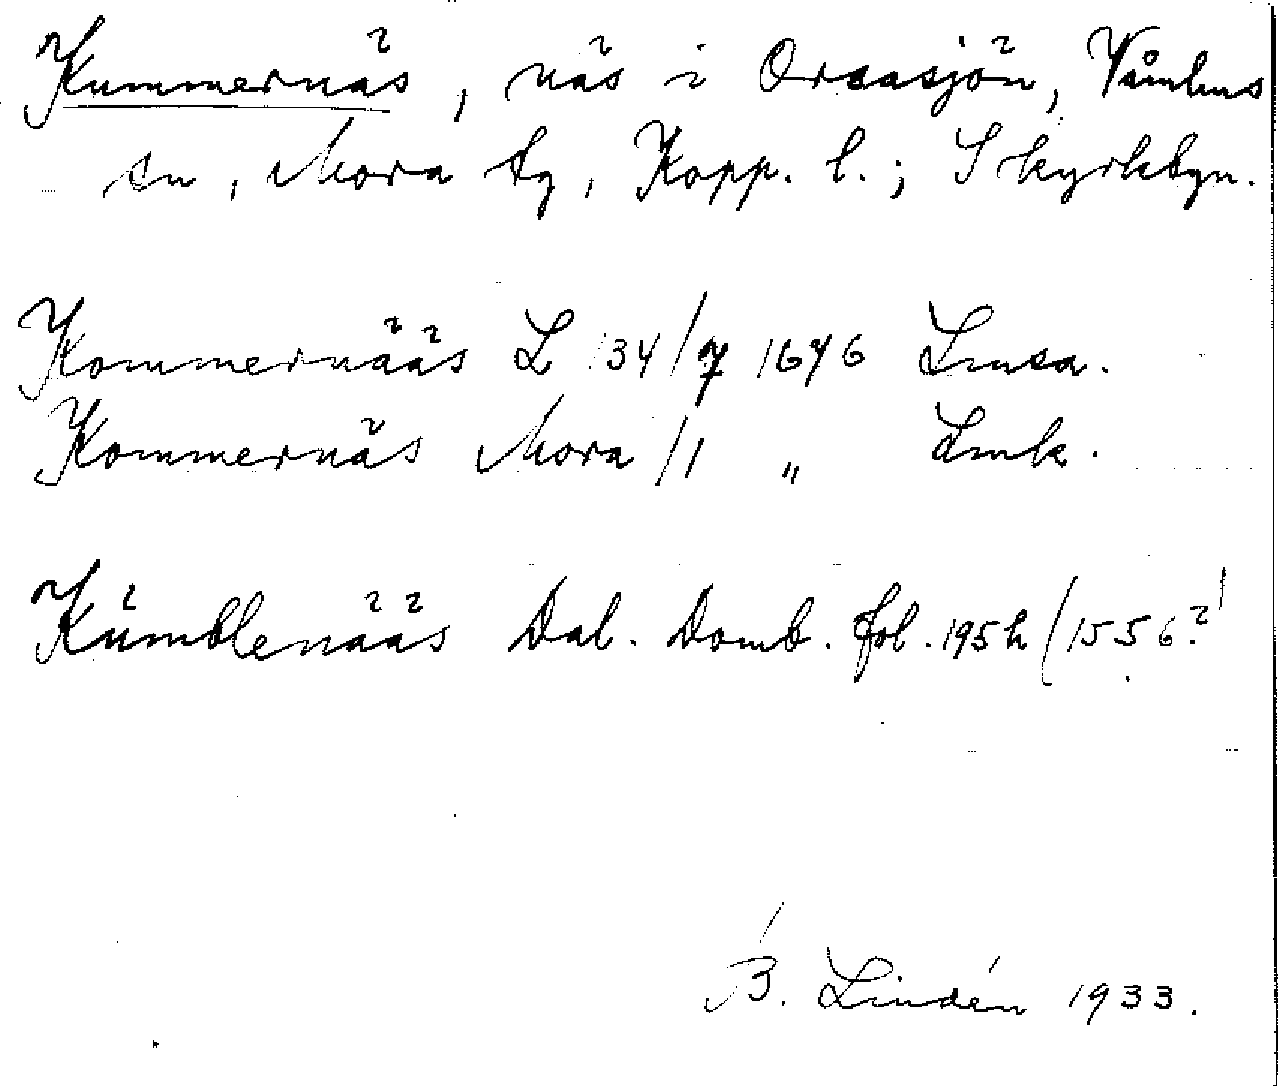 Kummernäs, näs i Orsasjön, Våmhus
sn, Mora tg, Kopp. l.; S kyrkbyn.
Kommernääs L 34/7 1646 Lmsa.
Kommernäs Mora /1 „ Lmk.
Kümblenääs Dal. Domb. fol. 195h (1556?)
B. Lindén 1933.